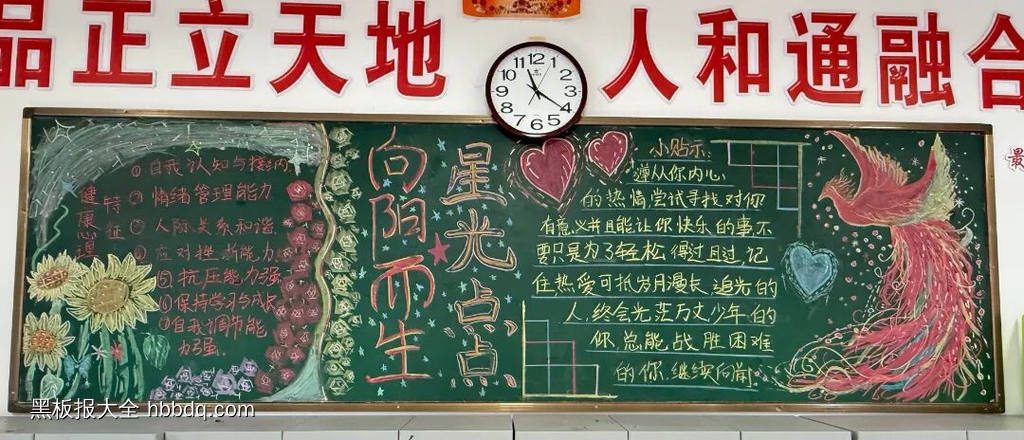 品正立天地 人和通融合
12
1
2
3
4
5
6
7
8
9
10
11
健康心理
特征
①自我认知与接纳
②情绪管理能力
③人际关系和谐
④应对挫折能力
⑤抗压能力强
⑥保持学习与成长
⑦自我调节能
力强.
向阳而生
星光点点
小贴示:
遵从你内心
的热情尝试寻找对你
有意义并且能让你快乐的事不
要只是为了轻松 得过且过 记
住热爱可抵岁月漫长 追光的
人,终会光茫万丈,少年,的
你,总能战胜困难
的你,继续向前
最
黑板报大全 hbbdq.com